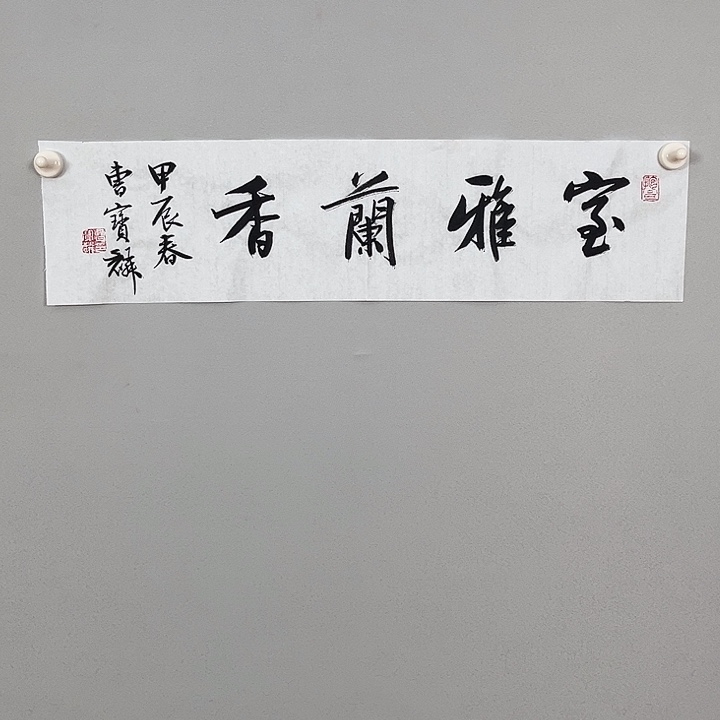 室雅蘭香
甲辰春
曹寶麟